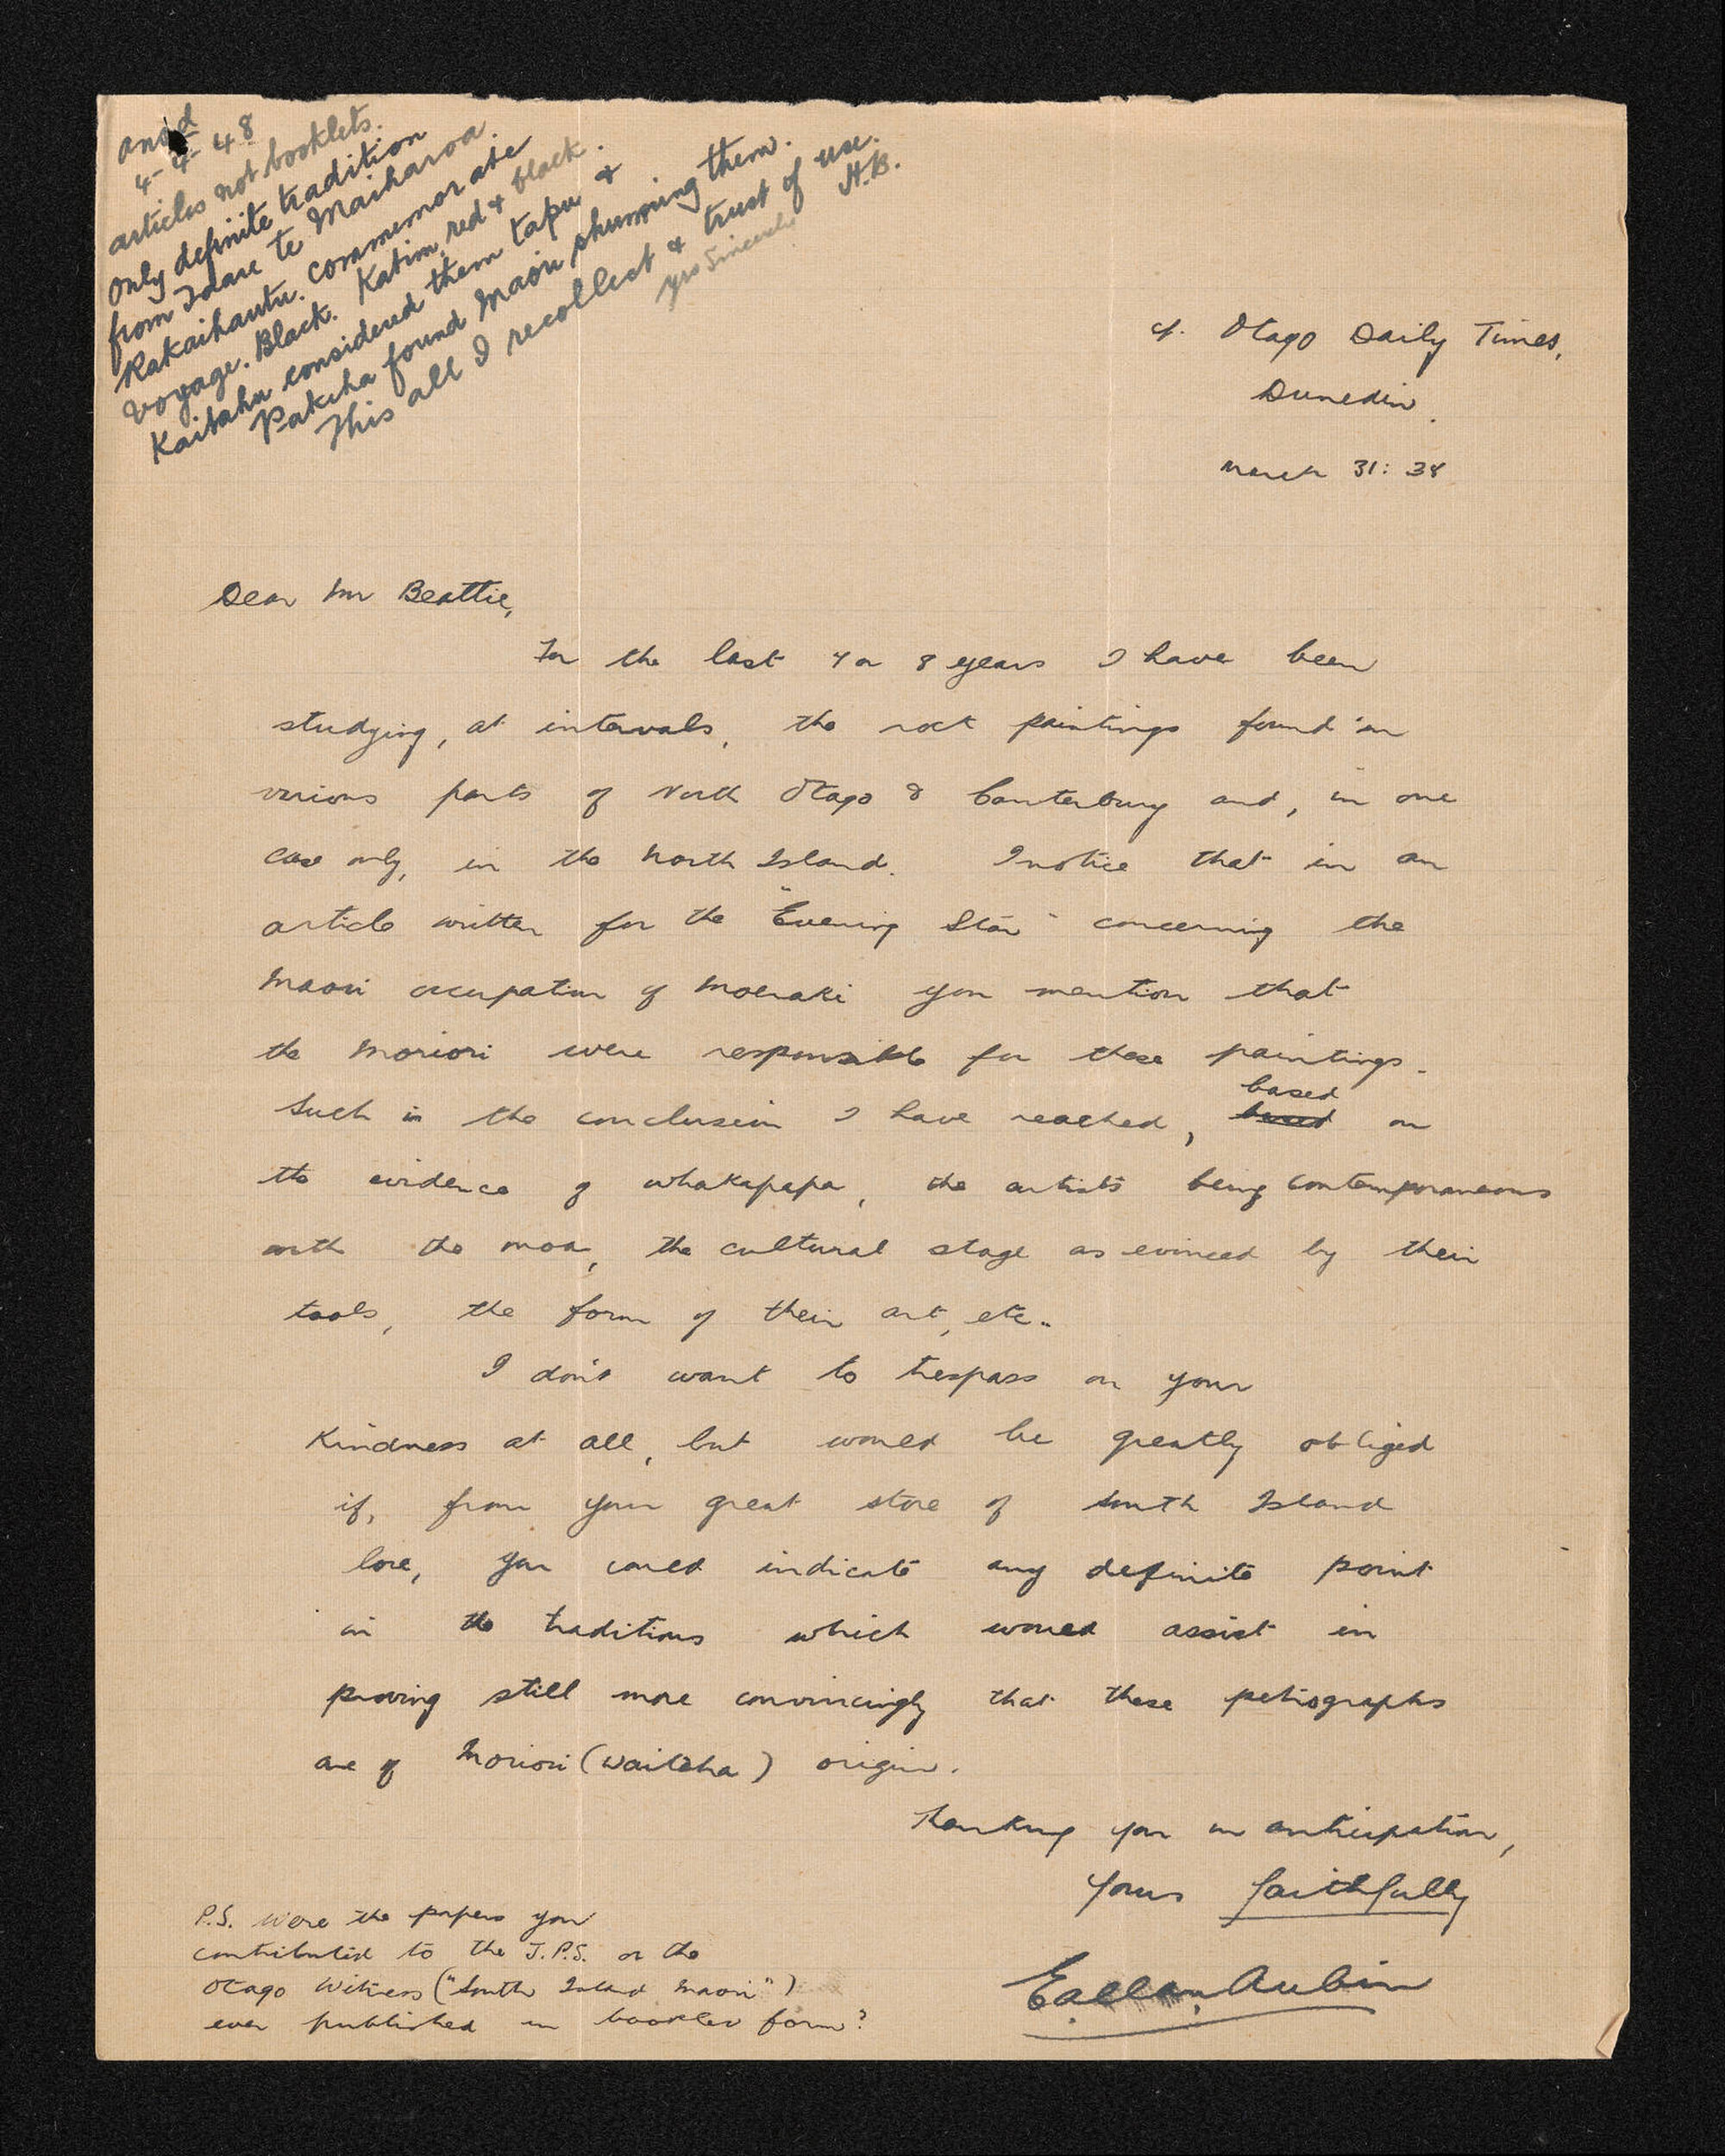 ansd
4-4-48
articles not booklets.
Only definite tradition
from Taare te Maiharoa.
Rakaihautu. commemorate
voyage. Black. Katim. red & black.
Kaitahu considered them tapu &
Pakeha found Maori shunning them.
This all I recollect & trust of use.
yrs sincerely H.B.
c/- Otago Daily Times,
Dunedin.
March 31: 38
Dear Mr Beattie,
For the last 7 or 8 years I have been
studying, at intervals, the rock paintings found in
various parts of North Otago & Canterbury and, in one
case only, in the North Island. I notice that in an
article written for the "Evening Star" concerning the
Maori occupation of Moeraki you mention that
the Moriori were responsible for these paintings.
Such is the conclusion I have reached, based on
the evidence of whakapapa, the artists being contemporaneous
with the moa, the cultural stage as evinced by their
tools, the form of their art, etc..
I don't want to trespass on your
kindness at all, but would be greatly obliged
if, from your great store of South Island
lore, you could indicate any definite point
in the traditions which would assist in
proving still more convincingly that these petrographs
are of Moriori (Waitaha) origin.
Thanking you in anticipation,
Yours faithfully
E allan Aubin
P.S. Were the papers you
contributed to the J.P.S. or the
Otago Witness ("South Island Maori")
ever published in booklet form?